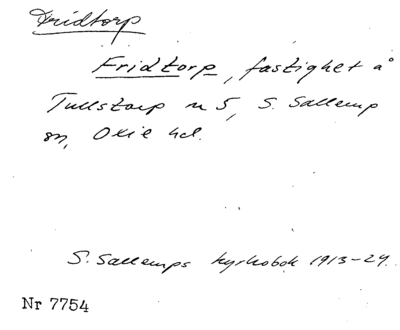 Fridtorp
Fridtorp, fastighet å
Tullstorp n 5, S. Sallerup
sn, Oxie hd.
S. Sallerups kyrkobok 1913-24.
Nr 7754